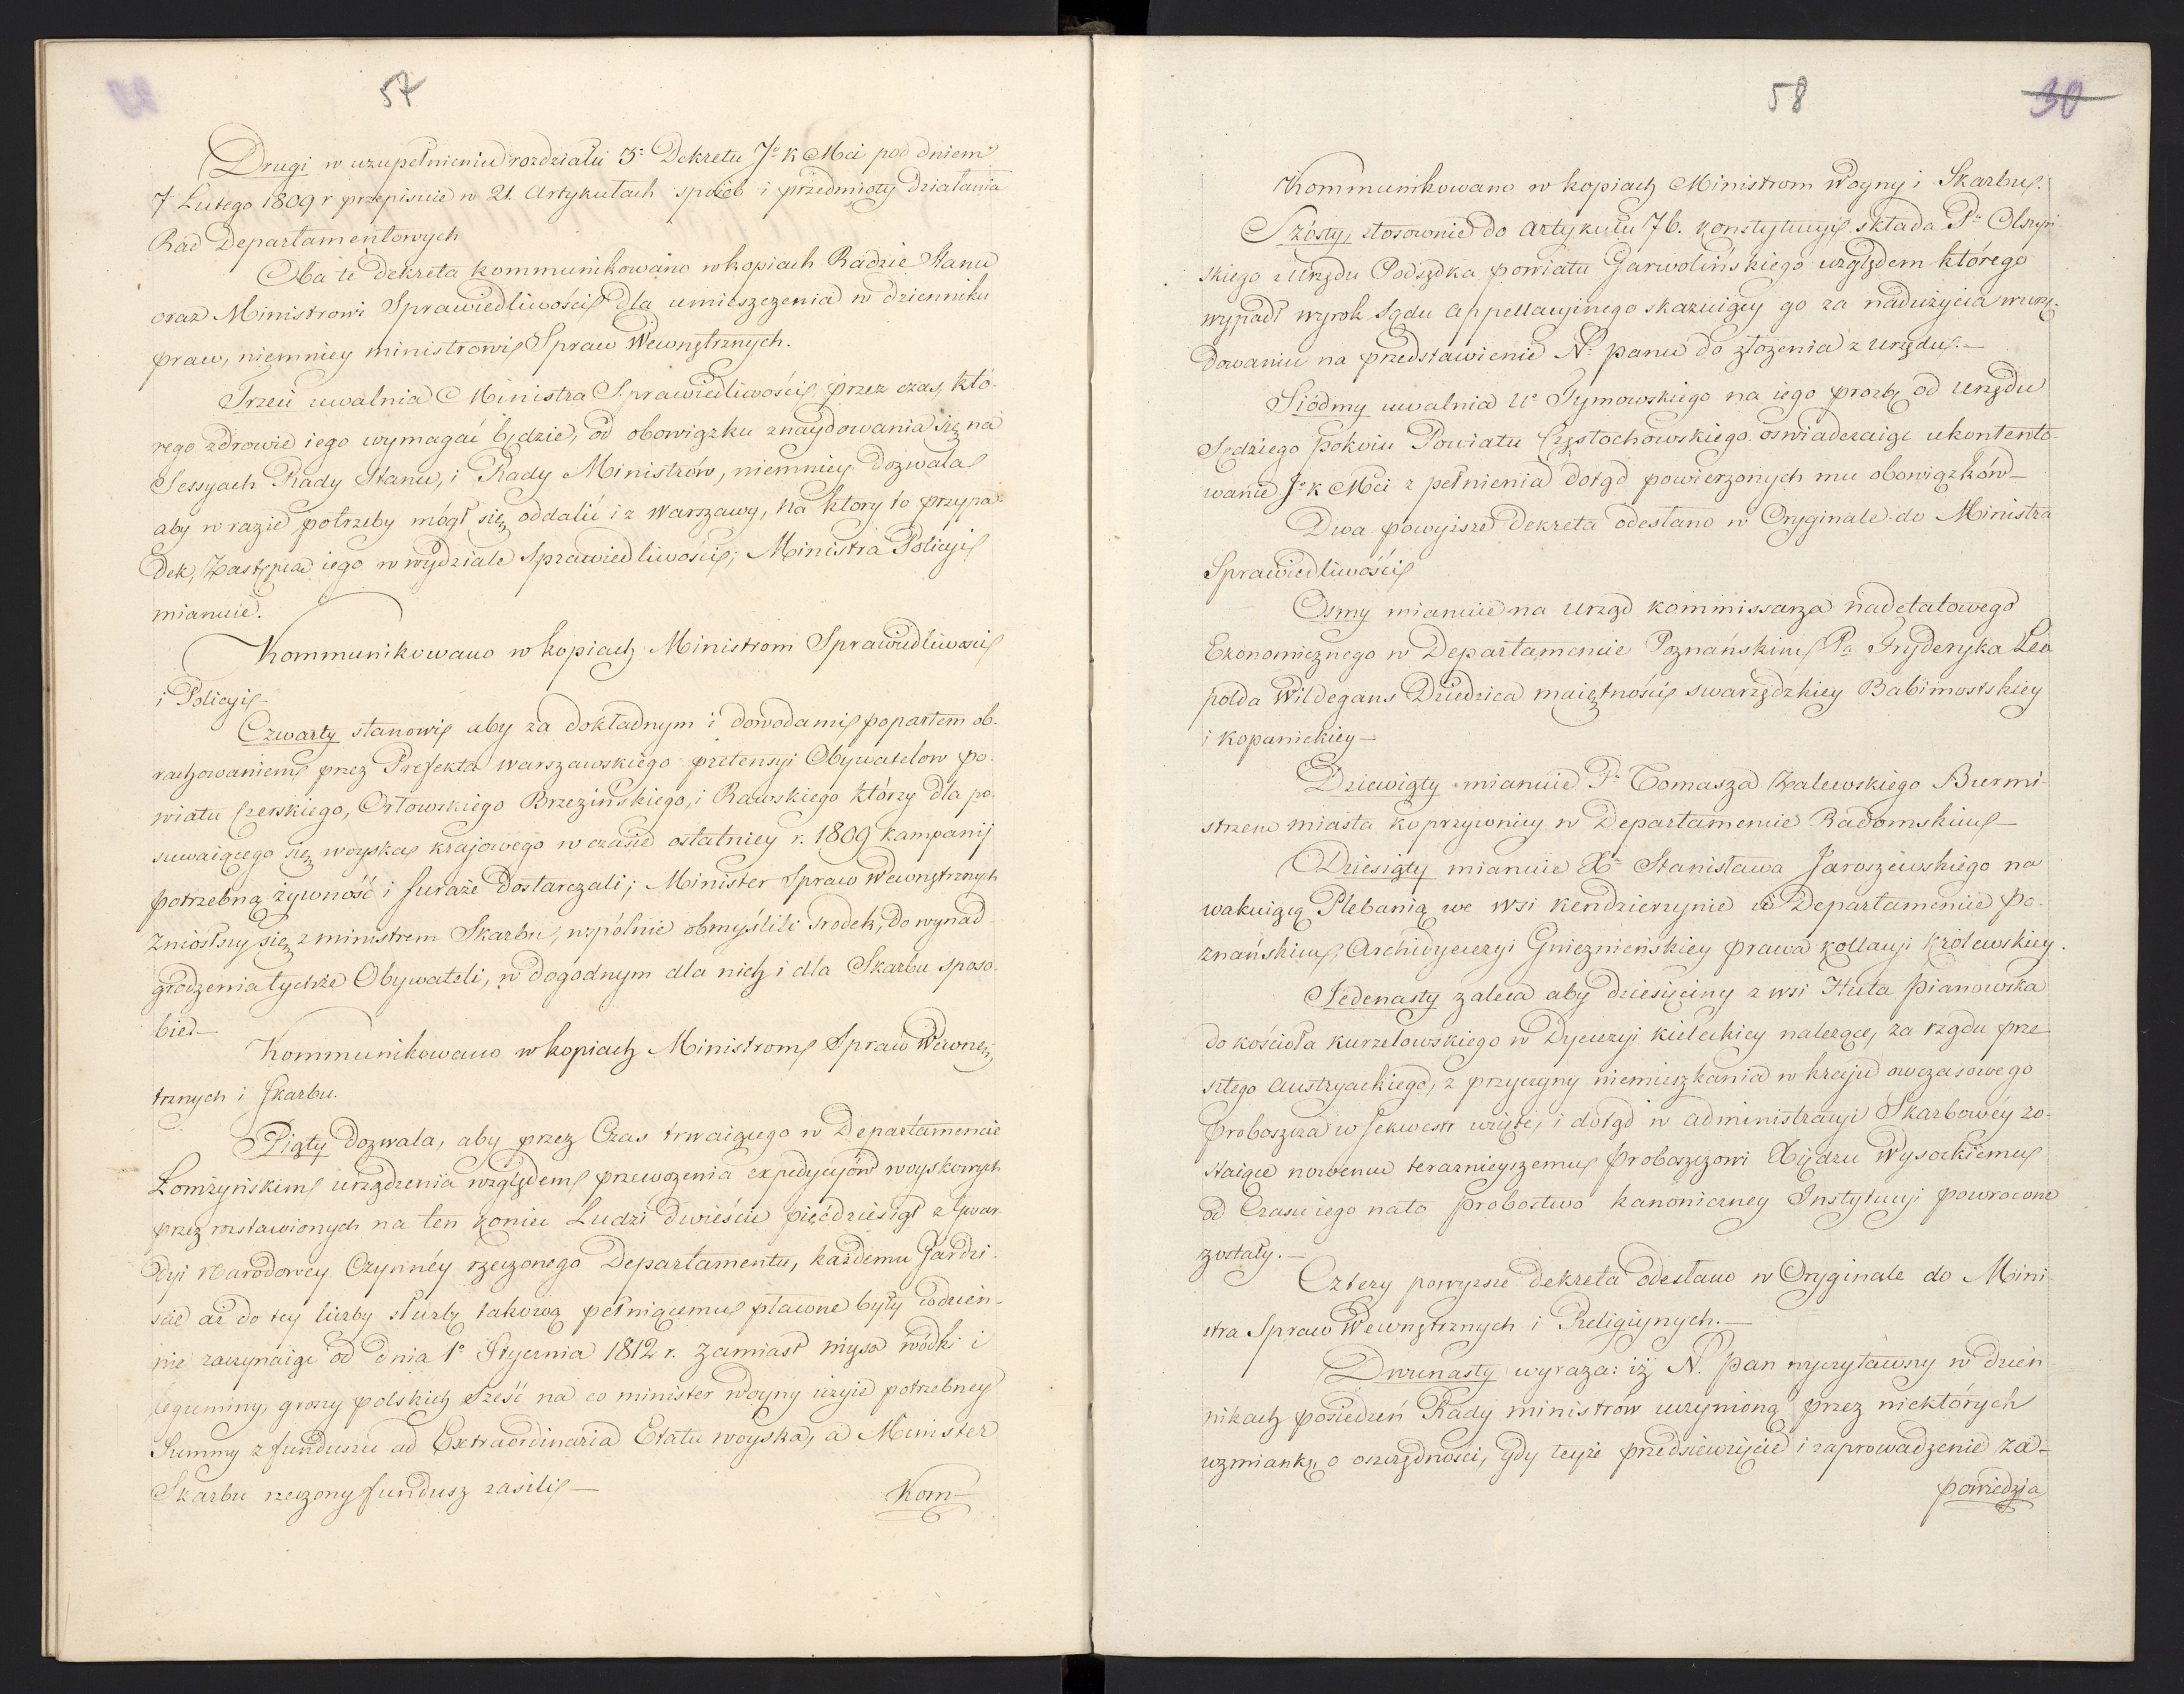 57
Drugi w uzupełnieniu rozdziału 3º Dekretu Jº K Mci pod dniem
7 Lutego 1809 r przepisuie w 21. Artykułach sposob i przedmioty działania
Rad Departamentowych
Oba te dekreta kommunikowano w kopiach Radzie Stanu
oraz Ministrowi Sprawiedliwości dla umieszczenia w dzienniku
praw, niemniey ministrowi Spraw Wewnętrznych.
Trzeci uwalnia Ministra Sprawiedliwości, przez czas, któ-
rego zdrowie iego wymagać będzie, od obowiązku znaydowania się na
Sessyach Rady Stanu, i Rady Ministrów, niemniey dozwala
aby w razie potrzeby mógł się oddalić i z Warszawy, na ktory to przypa-
dek, Zastępcą iego w wydziale Sprawiedliwości, Ministra Policyi
mianuie.
Kommunikowano w kopiach Ministrom Sprawiedliwości
i Policyi -
Czwarty stanowi aby za dokładnym i dowodami popartem ob-
rachowaniem przez Prefekta Warszawskiego pretensyi Obywatelow po-
wiatu Czerskiego, Orłowskiego Brzezińskiego, i Rawskiego którzy dla po-
suwaiącego się woyska krajowego w czasie ostatniey r. 1809 kampanij
potrzebną żywność i furaże dostarczali; Minister Spraw Wewnętrznych
zniosłszy się z ministrem Skarbu, wspólnie obmyślili srodek, do wynad-
grodzenia tychże Obywateli, w dogodnym dla nich i dla Skarbu sposo-
bie -
Kommunikowano w kopiach Ministrom Spraw Wewnę-
trznych i Skarbu.
Piąty dozwala, aby przez Czas trwaiącego w Departamencie
Łomżyńskim urządzenia względem przewożenia expedycyjów woyskowych
przez rozstawionych na ten koniec Ludzi dwieście pięćdziesiąt z Gwar-
dyi Narodowey Czynnéy rzeczonego Departamentu, każdemu Gardzi-
scie aż do tey liczby służbę takową pełniącemu płacone były codzien-
nie zaczynaiąc od dnia 1º Stycznia 1812 r. zamiast mięsa wódki i
legueminy, groszy polskich sześć na co minister woyny użyie potrzebney
Summy z funduszu ad Extraordinaria Etatu woyska, a Minister
Skarbu rzeczony fundusz zasili -
Kom-
58
30
Kommunikowano w kopiach Ministrom Woyny i Skarbu.
Szósty, stosownie do artykułu 76. Konstytucyi składa Pª Olszyń
skiego z Urzędu Podsędka powiatu Garwolińskiego względem którego
wypadł wyrok Sądu Appellacyinego skazuiący go za nadużycia w urzę-
dowaniu na przedstawienie N: panu do złożenia z urzędu. -
Siódmy uwalnia Uº Tymowskiego na iego prozbę od Urzędu
Sędziego Pokoiu Powiatu Częstochowskiego oswiadczaiąc ukontento-
wanie Jº K Mci z pełnienia dotąd powierzonych mu obowiązków -
Dwa powyższe dekreta odesłano w Oryginale do Ministra
Sprawiedliwości
Osmy mianuie na Urząd kommissarza nadetatowego
Ekonomicznego w Departamencie Poznańskim Pª Fryderyka Leo
polda Wildegans Dziedzica maiętności swarzędzkiey Babimostskiey
i Kopanickiey -
Dziewiąty mianuie Pª Tomasza Zalewskiego Burmi-
strzem miasta Koprzywnicy w Departamencie Radomskim -
Dziesiąty mianuie Xª Stanisława Jaroszewskiego na
wakuiącą Plebanią we wsi Kendzierzynie w Departamencie Po-
znańskim, Archidyecezyi Gnieznieńskiey prawa kollacyi królewskiey.
Jedenasty zaleca aby dziesięciny z wsi Huta Pianowska
do kościoła kurzelowskiego w Dyecezyi kieleckiey należące, za rządu prze-
szłego Austryackiego, z przyczyny niemieszkania w kraju owczasowego
Proboszcza w Sekwestr wzięte, i dotąd w administracyi Skarbowéy zo-
staiące nowemu teraznieyszemu Proboszczowi Xiędzu Wysockiemu
od Czasu iego na to Probostwo kanoniczney Instytucyi powrocone
zostały. -
Cztery powyższe dekreta odesłano w Oryginale do Mini-
stra Spraw Wewnętrznych i Religiynych. -
Dwunasty wyraża: iż N. Pan wyczytawszy w dzien-
nikach posiedzeń Rady ministrów uczynioną przez niektórych
wzmiankę o oszczędności, gdy teyże przedsięwzięcie i zaprowadzenie za-
powiedzia